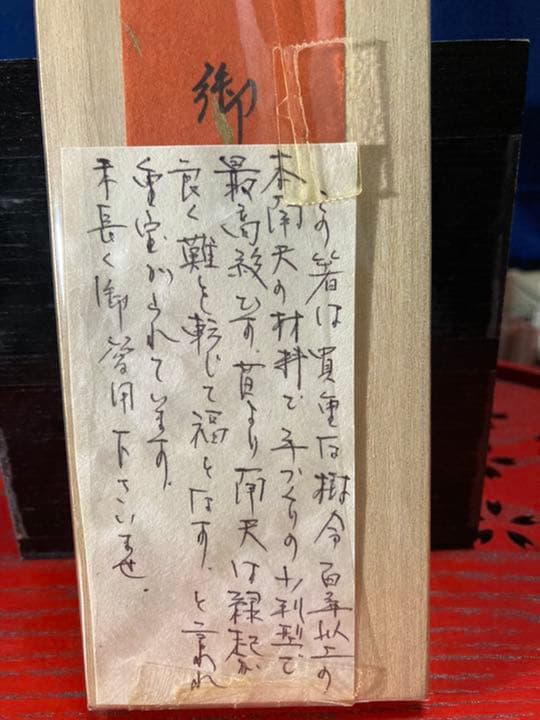 御
この箸は貴重な樹令百年以上の
本南天の材料で手づくりの小判型で
最高級です.昔より南天は縁起が
良く難を転じて福となす.と言われ
重宝がられています.
末長く御愛用下さいませ.